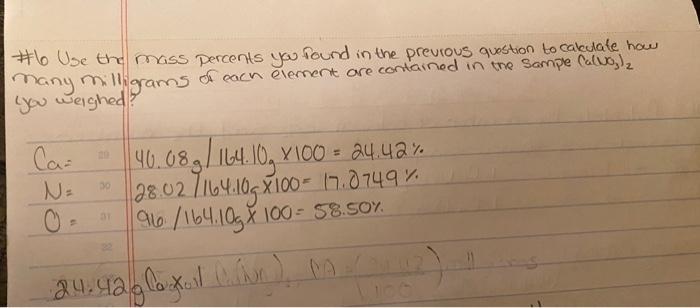 #6 Use the mass percents you found in the previous question to calculate how
many milligrams of each element are contained in the sample Ca(NO3)2
you weighed?
Ca= 40.08g/164.10g x100 = 24.42%
N= 30 28.02/164.10g x100= 17.0749%
O= 31 96/164.10g x 100= 58.50%
24.42g Ca x